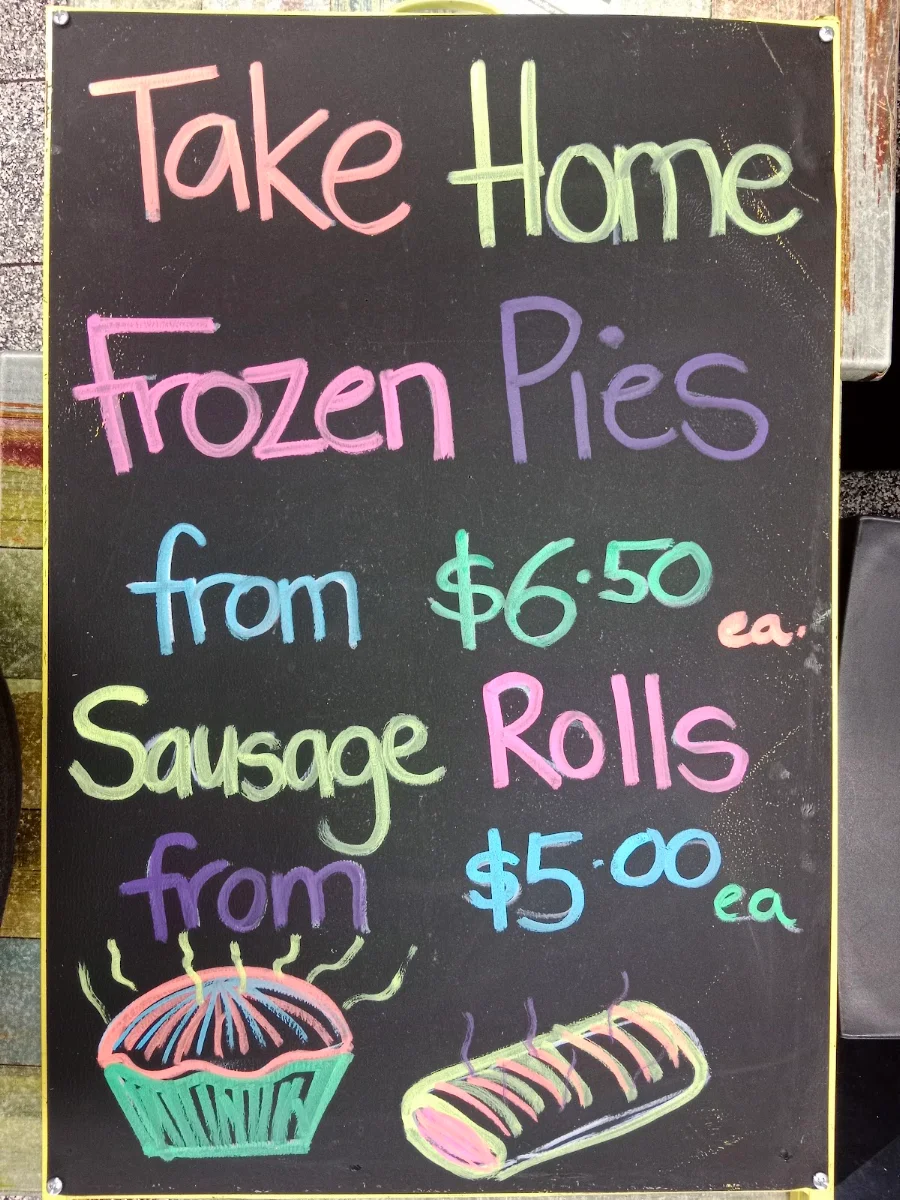 Take Home
Frozen Pies
from $6.50 ea.
Sausage Rolls
from $5.00 ea